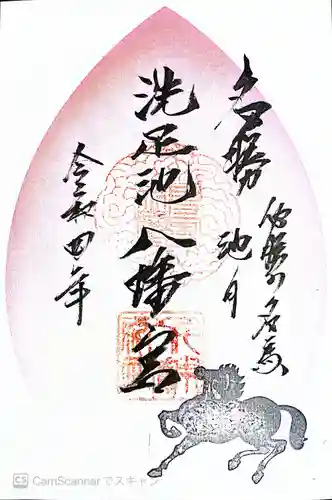 名勝
池月
伝勝の名馬
洗足池八幡宮
令和四年
CS CamScannerでスキャン